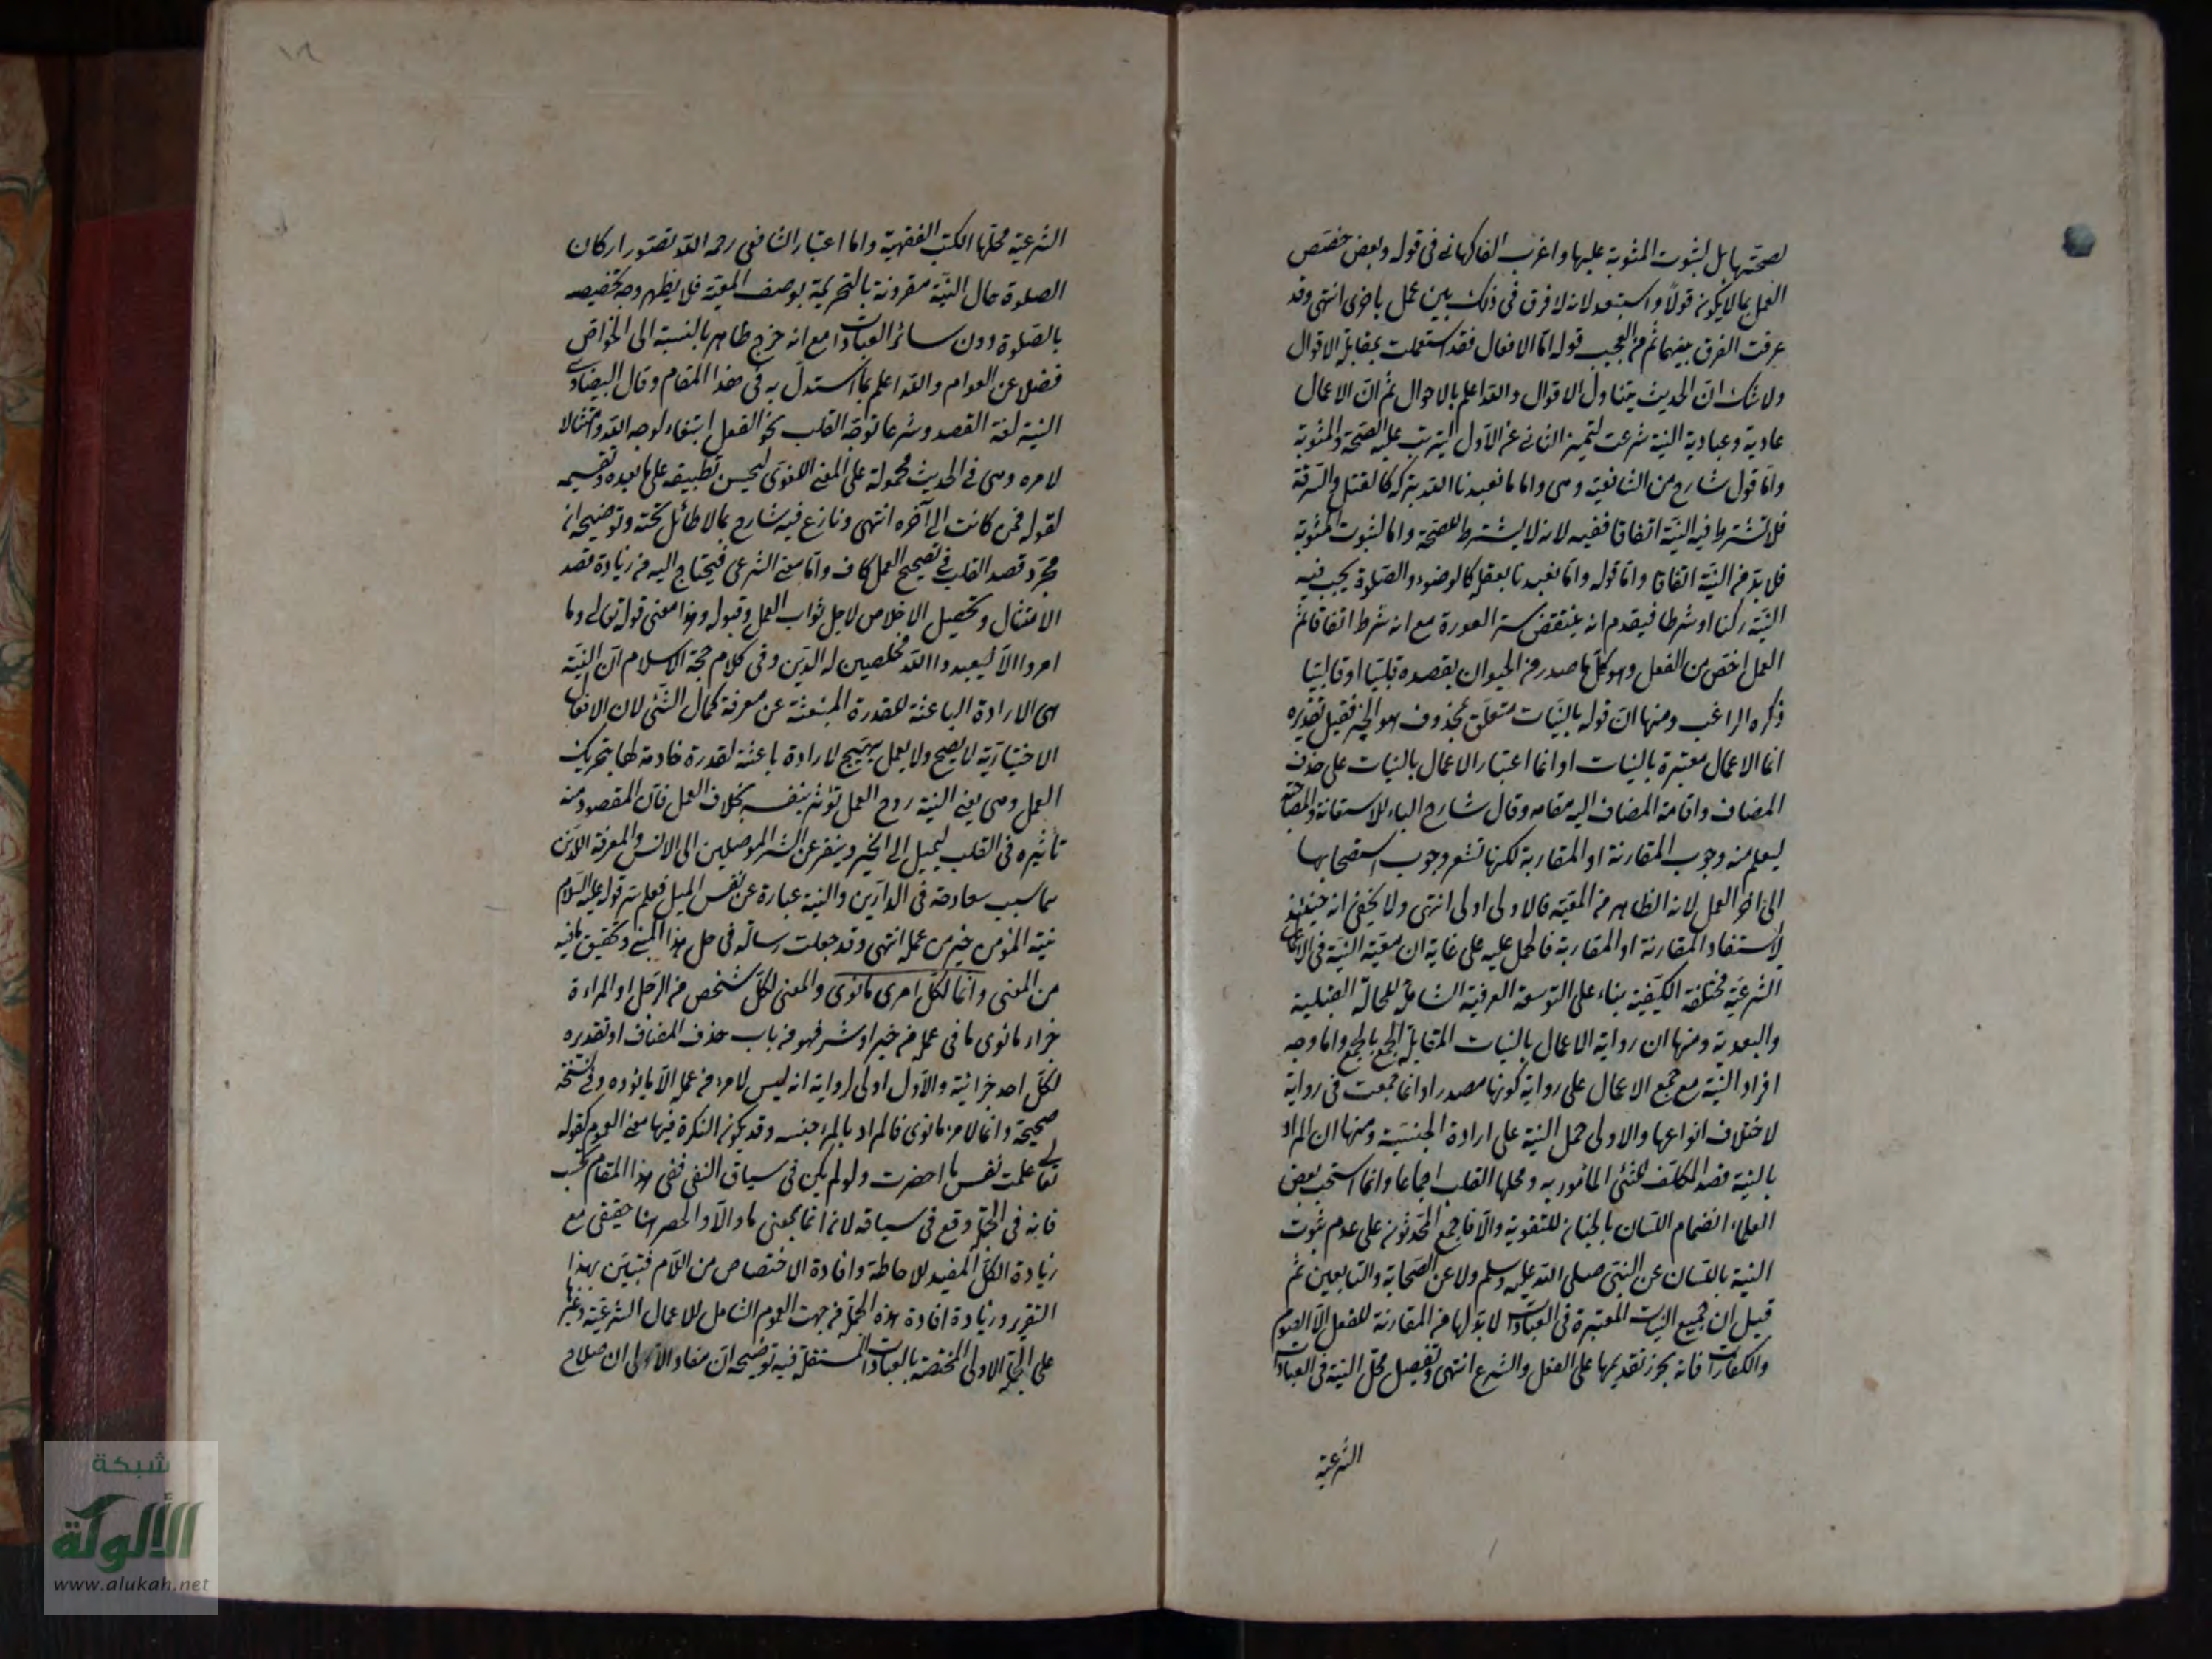 لصحتها بل لثبوت المثوبة عليها واغرب الفاكهاني في قوله وبعض خصص
العمل بما لا يكون قولاً واستبعد لانه لا فرق في ذلك بين عمل باخرى انتهى وقد
عرفت الفرق بينهما ثم من العجيب قوله اما الافعال فقد استعملت بمقابلة الاقوال
ولا شك ان الحديث يتناول الاقوال والله اعلم بالاحوال ثم ان الاعمال
عادية وعبادية النية شرعت لتميز الثاني عن الاول ليترتب عليه الصحة والمثوبة
واما قول شارح من الشافعية وهي واما ما تعبدنا الله بتركه كالقتل والسرقة
فلا تشترط فيه النية اتفاقا ففيه لانه لا يشترط للصحة واما لثبوت المثوبة
فلا بد من النية اتفاقا واما قوله واما تعبدنا بفعله كالوضوء والصلوة يجب فيه
النية ركنا او شرطا فيقدم انه ينتقض بستر العورة مع انه شرط اتفاقا ثم
العمل اخص من الفعل وهو كل ما صدر من الحيوان بقصده قلبيا او قالبيا
ذكره الراغب ومنها ان قوله بالنيات متعلق بمحذوف هو الخبر فقيل تقديره
انما الاعمال معتبرة بالنيات او انما اعتبار الاعمال بالنيات على حذف
المضاف واقامة المضاف اليه مقامه وقال شارح الباء للاستعانة والمصاحبة
ليعلم منه وجوب المقارنة او المقاربة لكنها تشعر وجوب استصحابها
الى اخر العمل لانه الظاهر من المعية فالاولى اولى انتهى ولا يخفى انه حينئذ
لا ستفاد المقارنة او المقاربة فالحمل عليه على غاية ان معية النية في الاعمال
الشرعية مختلفة الكيفية بناء على التوسعة العرفية الشاملة للحالة القبلية
والبعدية ومنها ان رواية الاعمال بالنيات المقابلة الجمع بالجمع واما وجه
افراد النية مع جمع الاعمال على رواية كونها مصدرا وانما جمعت في رواية
لاختلاف انواعها والاولى حمل النية على ارادة الجنسية ومنها ان المراد
بالنية قصد المكلف للشئ المأمور به ومحلها القلب اجماعا وانما استحب بعض
العلماء انضمام اللسان بالجنان للتقوية والا فاجمع المحدثون على عدم ثبوت
النية باللسان عن النبي صلى الله عليه وسلم ولا عن الصحابة والتابعين ثم
قيل ان جميع النيات المعتبرة في العبادات لا بد لها من المقارنة للفعل الا الصوم
والكفارات فانه يجوز تقديمها على الفعل والشرع انتهى وتفصيل محل النية في العبادات
الشرعية
الشرعية محلها الكتب الفقهية واما اعتبار الشافعي رحمه الله تصور اركان
الصلوة حال النية مقرونة بالتحريمة بوصف المعية فلا يظهر وجه تخصيصه
بالصلوة دون سائر العبادات مع انه حرج ظاهر بالنسبة الى الخواص
فضلا عن العوام والله اعلم بما استدل به في هذا المقام وقال البيضاوي
النية لغة القصد وشرعا توجه القلب نحو الفعل ابتغاء لوجه الله وامتثالا
لامره وهي في الحديث محمولة على المعنى اللغوي ليحسن تطبيقه على ما بعده وتقسيمه
لقوله فمن كانت الى آخره انتهى ونازع فيه شارح بما لا طائل تحته وتوضيحه ان
مجرد قصد القلب في تصحيح العمل كاف واما معنى الشرعي فيحتاج اليه من زيادة قصد
الامتثال وتحصيل الاخلاص لاجل ثواب العمل وقبوله وهذا معنى قوله تعالى وما
امروا الا ليعبدوا الله مخلصين له الدين وفي كلام حجة الاسلام ان النية
هي الارادة الباعثة للقدرة المنبعثة عن معرفة كمال الشئ لان الافعال
الاختيارية لا يصح ولا يعمل بتهييج لارادة باعثة لقدرة خادمة لها بتحريك
العمل وهي يعني النية روح العمل تؤثر بنفسه بخلاف العمل فان المقصود منه
تأثيره في القلب ليميل الى الخير وينفر عن الشر الموصلين الى الانس والمعرفة اللذين
هما سبب سعادته في الدارين والنية عبارة عن نفس الميل فعلم سر قوله عليه السلام
نية المؤمن خير من عمله انتهى وقد جعلت رسالة في حل هذا المبنى وتحقيق ما فيه
من المعنى وانما لكل امرى ما نوى والمعنى لكل شخص من الرجل او المراءة
جزاء ما نوى ما في عمله من خير او شر فهو من باب حذف المضاف او تقديره
لكل احد جزا نية والاول اولى لرواية انه ليس لامرء من عمله الا ما نوده وفي نسخة
صحيحة وانما لامرء ما نوى فالمراد بالمرء جنسه وقد يكون النكرة فيها معنى العموم كقوله
تعالى علمت نفس ما احضرت ولو لم يكن في سياق النفي ففي هذا المقام بحسب
فانه في الجملة وقع في سياقه لانه انما بمعنى ما والا والحصر هنا حقيقي مع
زيادة الكل المفيد للاحاطة وافادة الاختصاص من اللام فتبين بهذا
التقرير وزيادة افادة هذه الجملة من جهت العموم الشامل للاعمال الشرعية وغيرها
على الجملة الاولى المختصة بالعبادات المستقلة فيه توضيحه ان مفاد الاولى ان صلاح
شبكة
الألوكة
www.alukah.net